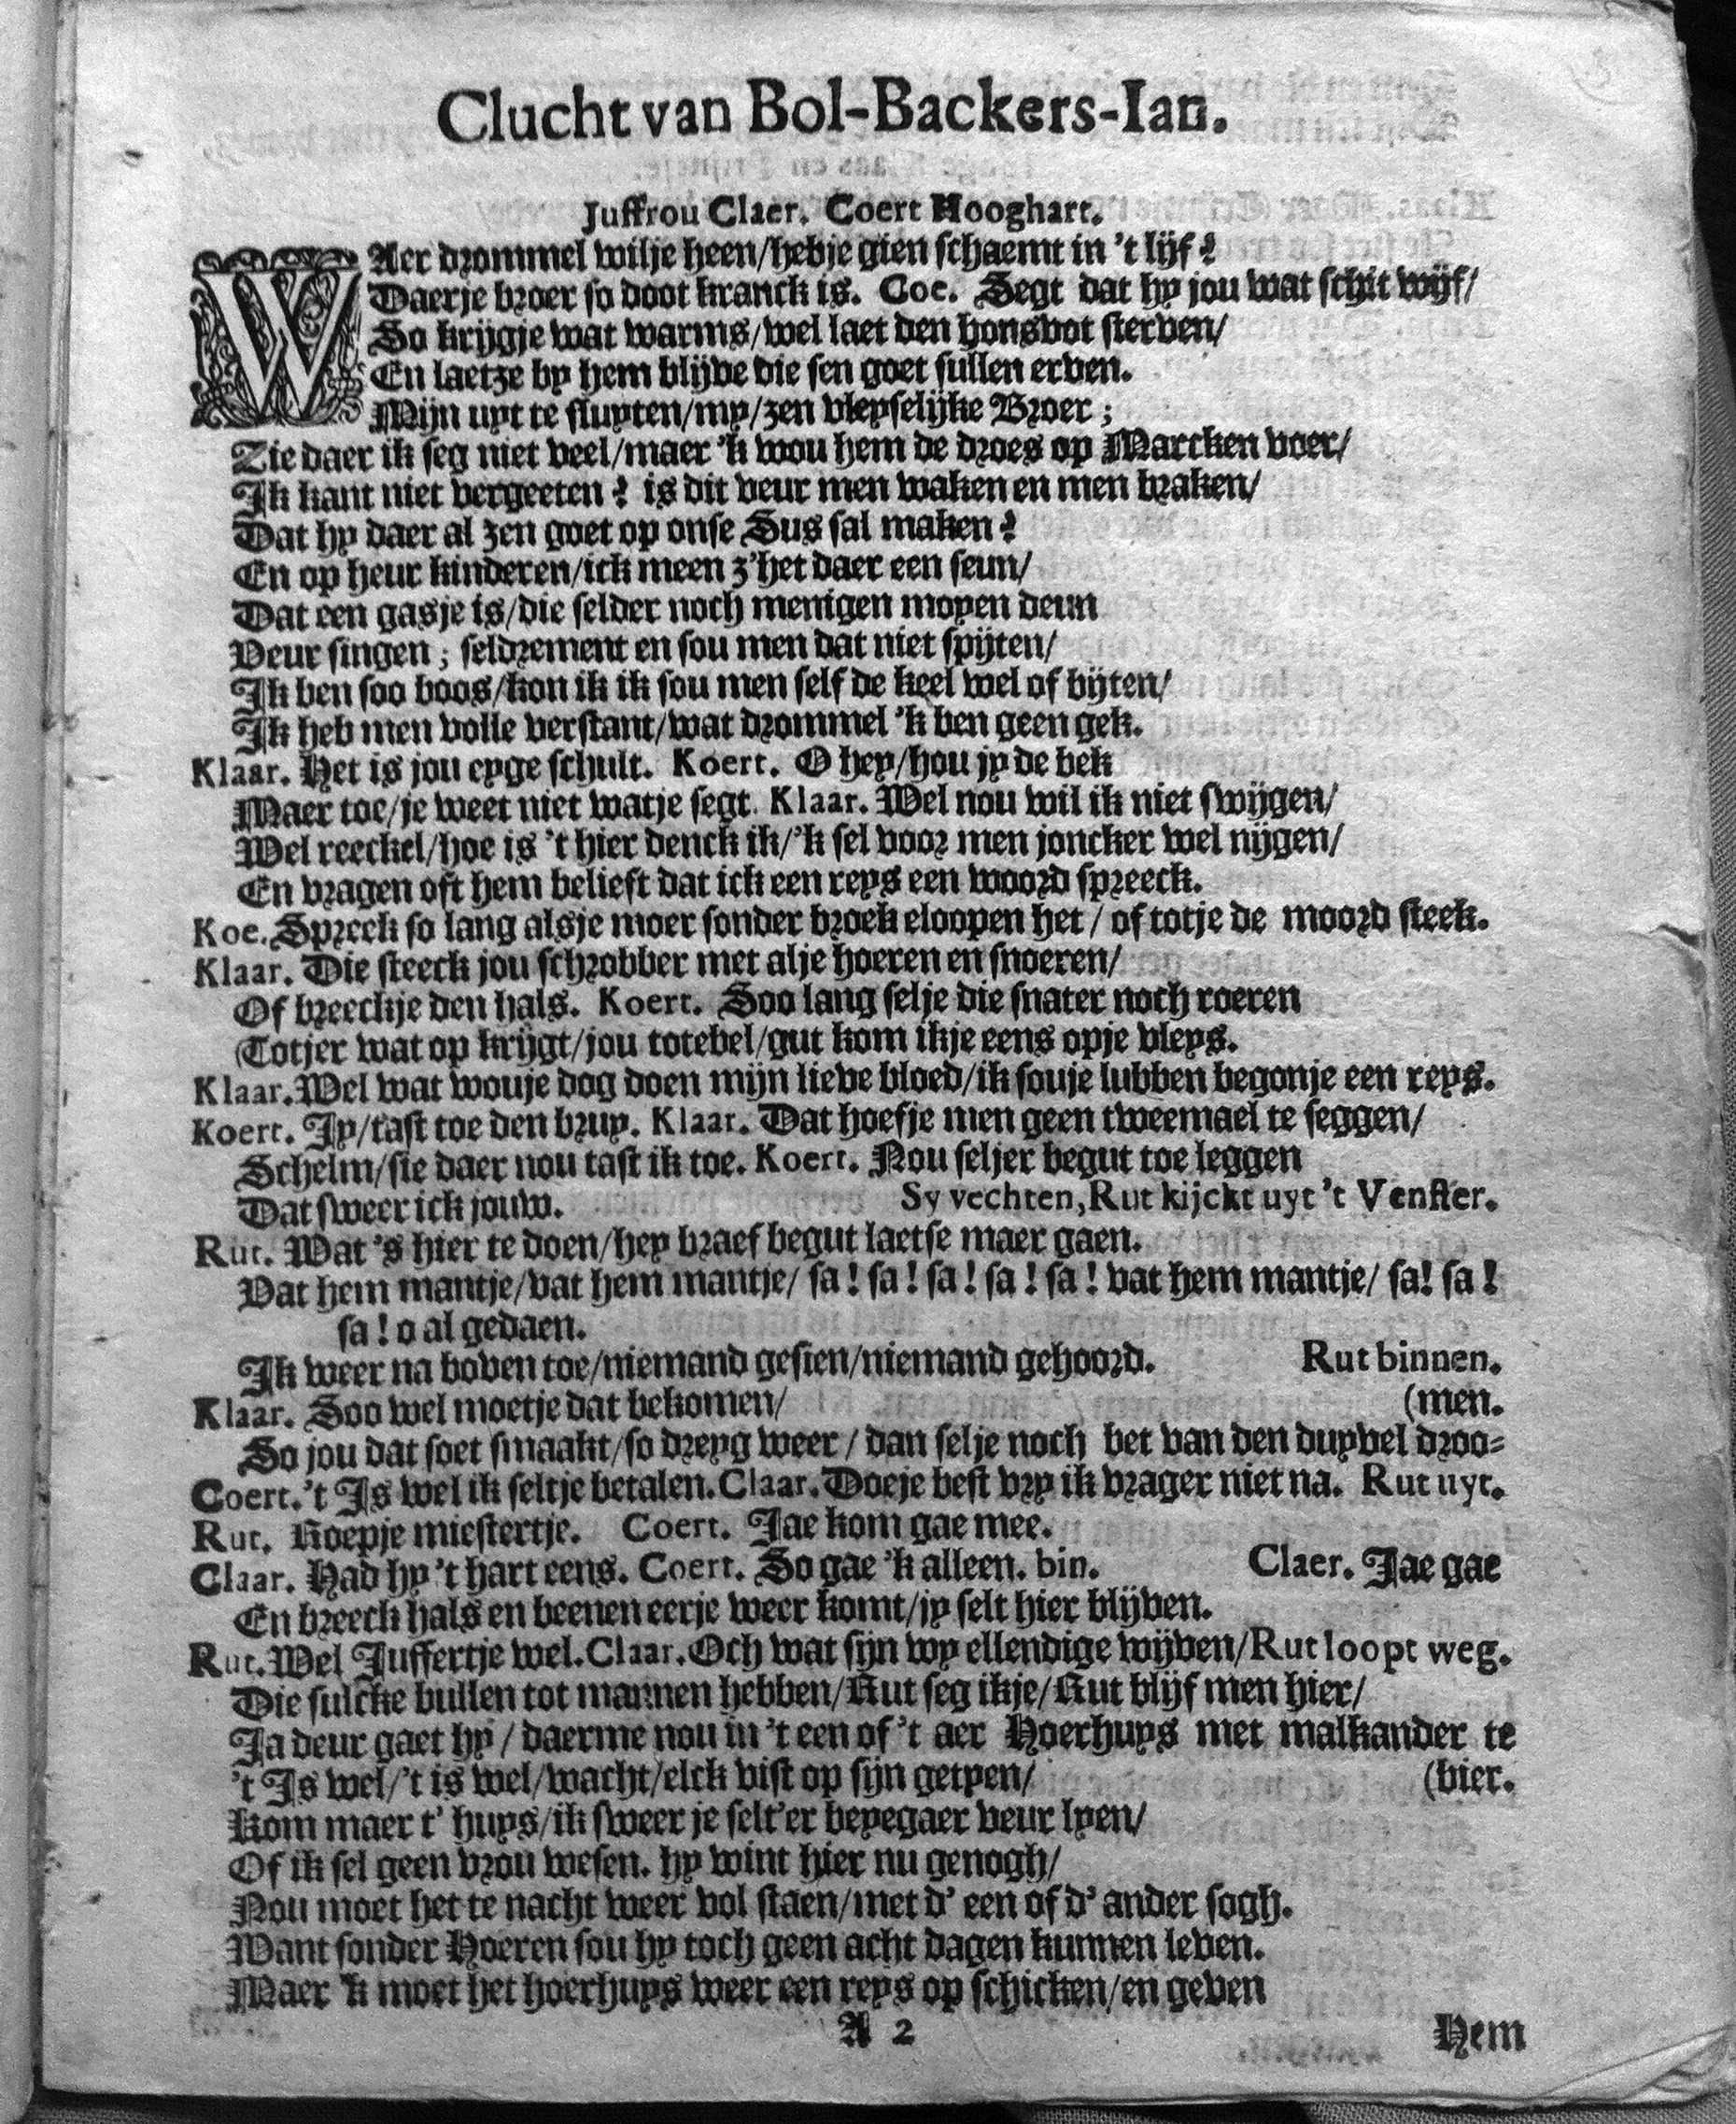 Clucht van Bol-Backers-Ian.
Juffrou Claer. Coert Hooghart.
WAer drommel wilje heen/hebje gien schaemt in 't lijf?
Daerje broer so doot kranck is. Coe. Segt dat hy jou wat schit wijf/
So krijgje wat warms/wel laet den honsvot sterven/
En laetze by hem blijve die sen goet sullen erven.
Mijn uyt te sluyten/my/zen vleyselijke Broer;
Zie daer ik seg niet veel/maer 'k wou hem de droes op Marcken voer/
Ik kant niet vergeeten? is dit veur men waken en men braken/
Dat hy daer al zen goet op onse Sus sal maken?
En op heur kinderen/ick meen z'het daer een seun/
Dat een gasje is/die selder noch menigen moyen deun
Veur singen; seldrement en sou men dat niet spijten/
Ik ben soo boos/kon ik ik sou men self de keel wel of bijten/
Ik heb men volle verstant/wat drommel 'k ben geen gek.
Klaar. Het is jou eyge schult. Koert. O hey/hou jy de bek
Maer toe/je weet niet watje segt. Klaar. Wel nou wil ik niet swijgen/
Wel reeckel/hoe is 't hier denck ik/'k sel voor men joncker wel nijgen/
En vragen oft hem belieft dat ick een reys een woord spreeck.
Koe. Spreek so lang alsje moer sonder broek eloopen het/ of totje de moord steek.
Klaar. Die steeck jou schrobber met alje hoeren en snoeren/
Of breeckje den hals. Koert. Soo lang selje die snater noch roeren
Totjer wat op krijgt/jou totebel/gut kom ikje eens opje vleys.
Klaar. Wel wat wouje dog doen mijn lieve bloed/ik souje lubben begonje een reys.
Koert. Jy/tast toe den bruy. Klaar. Dat hoefje men geen tweemael te seggen/
Schelm/sie daer nou tast ik toe. Koert. Nou seljer begut toe leggen
Dat sweer ick jouw. Sy vechten, Rut kijckt uyt 't Venster.
Rut. Wat 's hier te doen/hey braef begut laetse maer gaen.
Vat hem mantje/vat hem mantje/ sa! sa! sa! sa! sa! vat hem mantje/ sa! sa!
sa! o al gedaen.
Ik weer na boven toe/niemand gesien/niemand gehoord. Rut binnen.
Klaar. Soo wel moetje dat bekomen/ (men.
So jou dat soet smaakt/so dreyg weer/ dan selje noch bet van den duyvel droo-
Coert. 't Is wel ik seltje betalen. Claar. Doeje best vry ik vrager niet na. Rut uyt.
Rut. Roepje miestertje. Coert. Jae kom gae mee.
Claar. Had hy 't hart eens. Coert. So gae 'k alleen. bin. Claer. Jae gae
En breeck hals en beenen eerje weer komt/jy selt hier blijven.
Rut. Wel Juffertje wel. Claar. Och wat sijn wy ellendige wijven/Rut loopt weg.
Die sulcke bullen tot mannen hebben/Rut seg ikje/Rut blijf men hier/
Ja deur gaet hy/ daerme nou in 't een of 't aer Hoerhuys met malkander te
't Is wel/'t is wel/wacht/elck vist op sijn getyen/ (bier.
Kom maer t' huys/ik sweer je selt'er beyegaer veur lyen/
Of ik sel geen vrou wesen. hy wint hier nu genogh/
Nou moet het te nacht weer vol staen/met d' een of d' ander sogh.
Want sonder Hoeren sou hy toch geen acht dagen kunnen leven.
Maer 'k moet het hoerhuys weer een reys op schicken/en geven
A 2 Hem